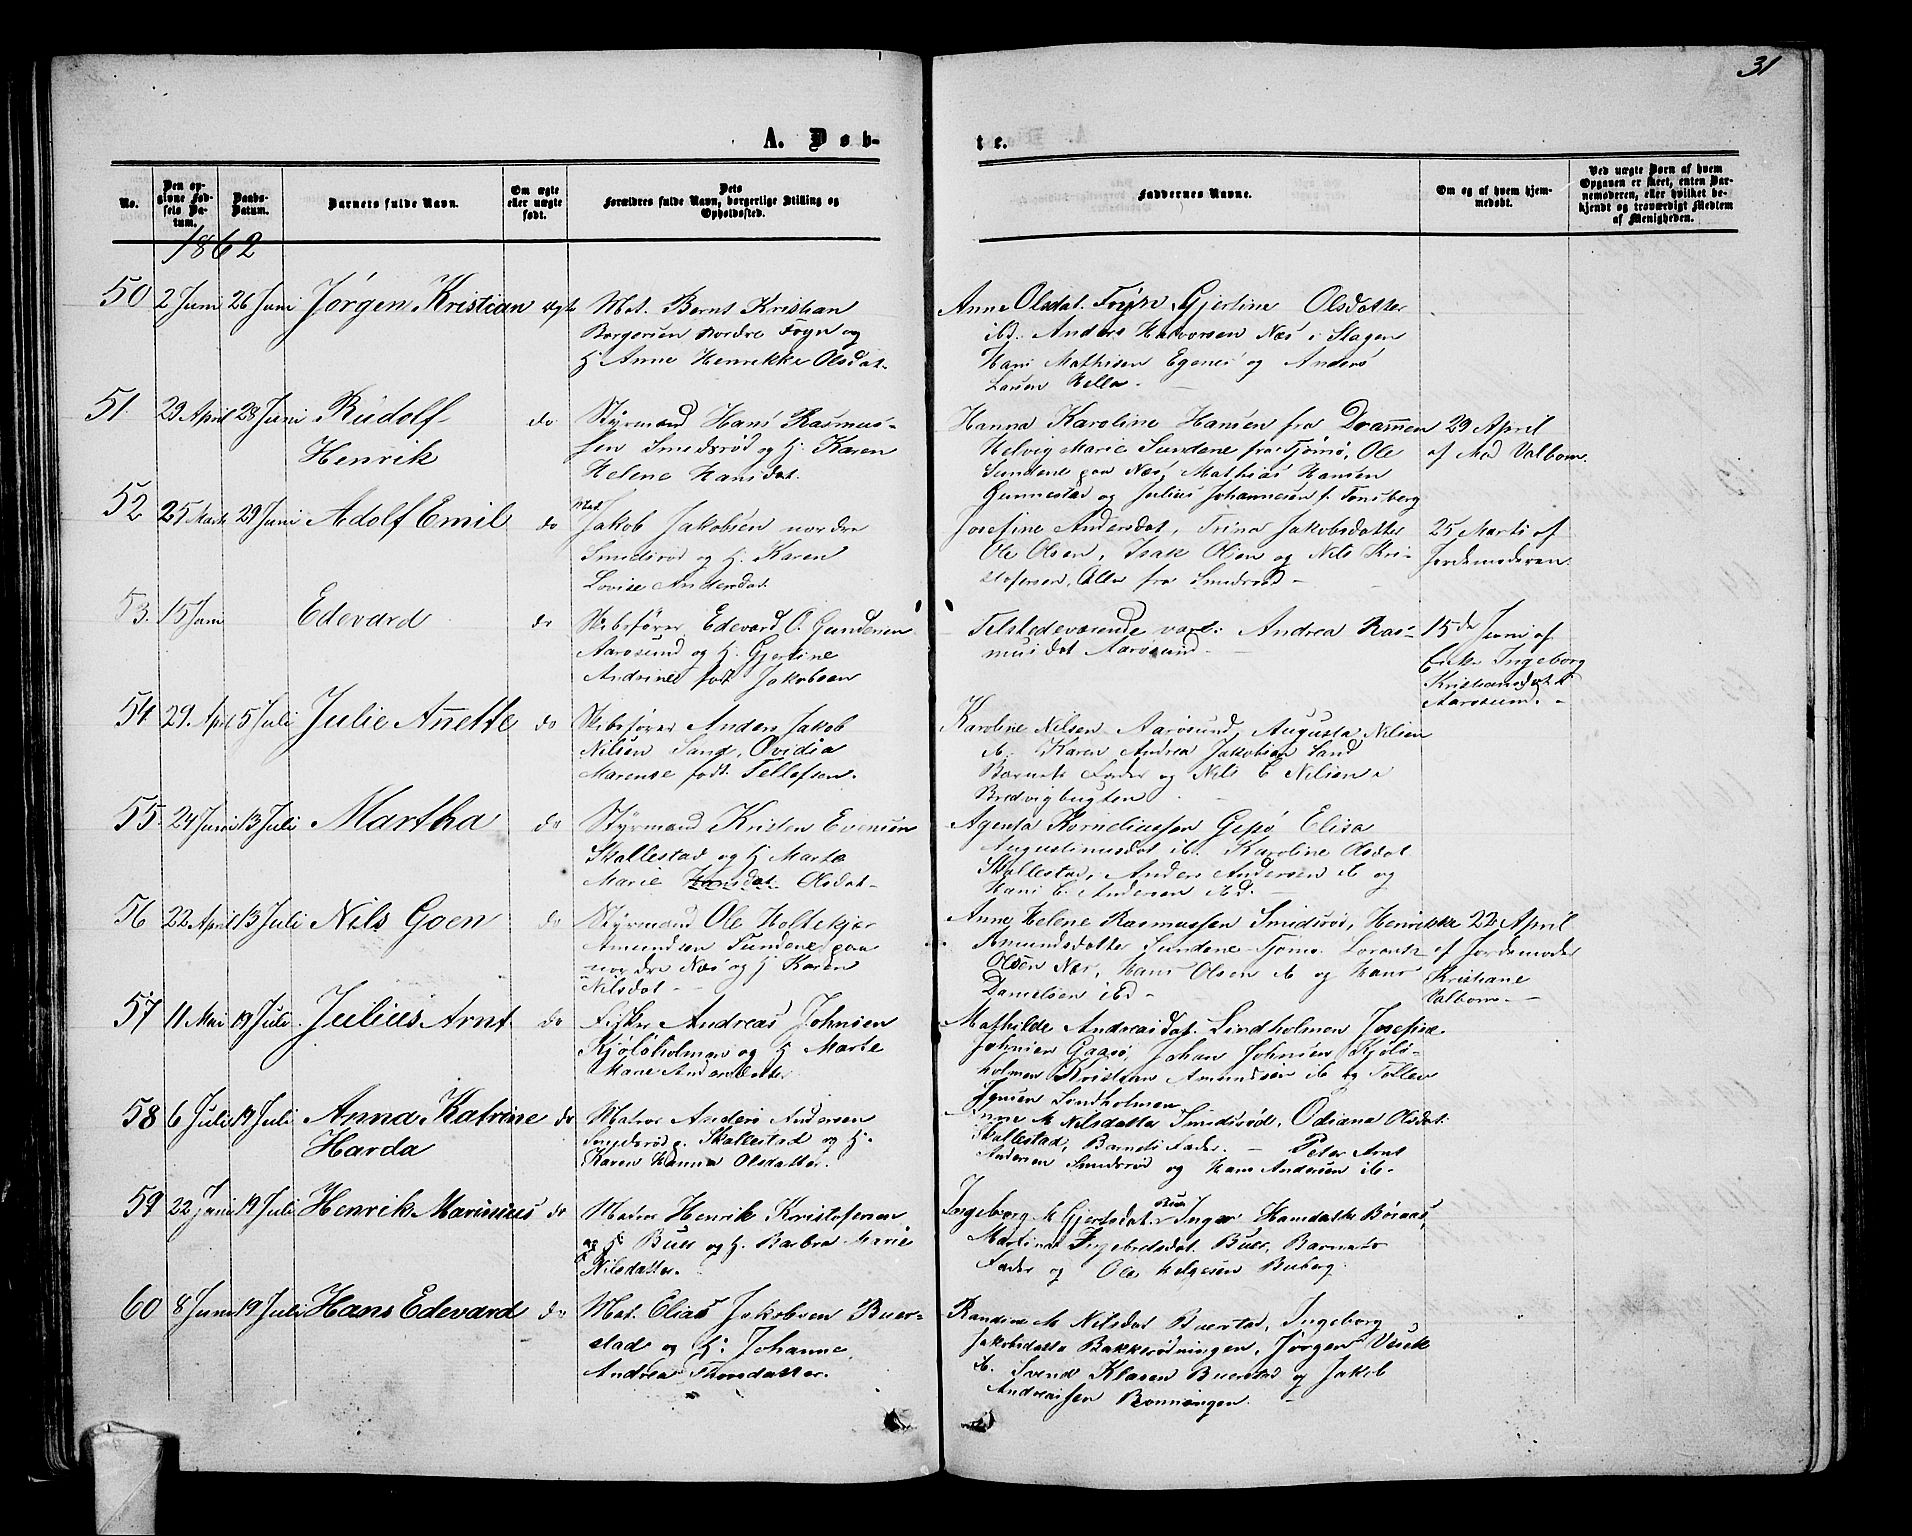 31
A. Døb-
te.
No.
Den opgivne Fødsels Datum.
Daabs-Datum.
Barnets fulde Navn.
Om ægte eller uægte født.
Dets Forældres fulde Navn, borgerlige Stilling og Opholdssted.
Faddernes Navne.
Om og af hvem hjemmedøbt.
Ved uægte Børn af hvem Opgaven er skeet, enten Barnemoderen, eller hvilket bekjendt og troværdigt Medlem af Menigheden.
1862
50 2 Juni 26 Juni Jørgen Kristian ægt
Mat. Bernt Kristian
Borgersen nordre Føyn og
H Anne Henrikke Olsdat.
Anne Olsdat. Føyn, Gjertine Olsdatter
ibd. Anders Halvorsen Næs i Slagen
Hans Mathisen Egenes og Anders
Larsen Hella.
51. 23 April 28 Juni Rudolf
Henrik
do
Styrmand Hans Rasmus-
sen Smedsrød og H. Karen
Helene Hansdat.
Hanna Karoline Hansen fra Drammen
Helvig Marie Sundene fra Tjømø, Ole
Sundene paa Næs, Mathias Hansen
Gunnestad og Julius Johannesen f. Tønsberg
29 April
af Mad Valbom.
52 25 Marts 29 Juni Adolf Emil do
Mat.
Jakob Jakobsen nordre
Smedsrød og H. Karen
Lovise Andersdat.
Josefine Andersdat, Trina Jakobsdatter
Ole Olsen, Isak Olsen og Nils Kri-
stofersen, Alle fra Smedsrød
25 Marts af
Jordemoderen.
53. 15 Juni Edevard do
Skibsfører Edevard O. Gundersen
Aarøsund og H. Gjertine
Andrine født Jakobsen
Tilstedeværende vare: Andrea Ras-
musdat Aarøsund.
15de Juni af
Enke Ingeborg
Kristiansdat
Aarøsund.
54 29. April 5 Juli Julie Anette do
Skibsfører Anders Jakob
Nilsen Sand, Ovidia
Marense født Tellefsen.
Karoline Nilsen Aarøsund, Augusta Nilsen
ib. Karen Andrea Jakobsen Sand
Barnets Fader og Nils C Nilsen i
Bredvigbugten
55. 24 Juni 13 Juli Martha do
Styrmand Kristen Evensen
Skallestad og H Marte
Marie Olsdat.
Agenta Korneliussen Gipø Elisa
Augustinusdat ib. Karoline Olsdat
Skallestad, Anders Andersen ib og
Hans C. Andersen ibd.
56 22 April 13 Juli Nils Goen do
Styrmand Ole Holtekjær
Amundsen Sundene paa
nordre Næs og H Karen
Nilsdat
Anne Helene Rasmussen Smidsrød, Henrikke
Amundsdatter Sundene Tjømø. Lorents
Olsen Næs, Hans Olsen ib og Hans
Danielsen ibd
22 April
af Jordemoder
Kristiane
Valbom
57 11 Mai 19 Juli Julius Arnt do
Fisker Andreas Johnsen
Kjøløholmen og H Marte
Marie Andersdatter
Mathilde Andreasdat. Lindholmen Josefine
Johnsen Gaasø, Johan Johnsen Kjølø-
holmen Kristian Amundsen ib og Tollev
Lindholmen
58 6 Juli 19 Juli Anna Katrine
Harda
do
Matros Anders Andersen
Smedsrød p. Skallestad og H.
Karen Hanna Olsdatter.
M Nilsdatter Smidsrød, Odiana Olsdat.
Skallestad, Barnets Fader. Peter Arnt
Andersen Smedsrød og Hans Andersen ib.
59 22 Juni 19 Juli Henrik Marinius do
Matros Henrik Kristofersen
Buer og H. Barbra Marie
Nilsdatter.
Ingeborg M Gjertsdat. Buer Inger Hansdatter Børaas,
Martina Ingebretsdat. Buer, Barnets
Fader og Ole Helgesen Buberg.
60 8 Juni 19 Juli Hans Edevard do
Mat. Elias Jakobsen Buer-
stad og H: Johanne
Andrea Thorsdatter.
Randine M Nilsdat Buerstad, Ingeborg
Jakobsdatter Bakkerødningen, Jørgen
ib. Svend Klasen Buerstad og Jakob
Andreassen Rønningen.